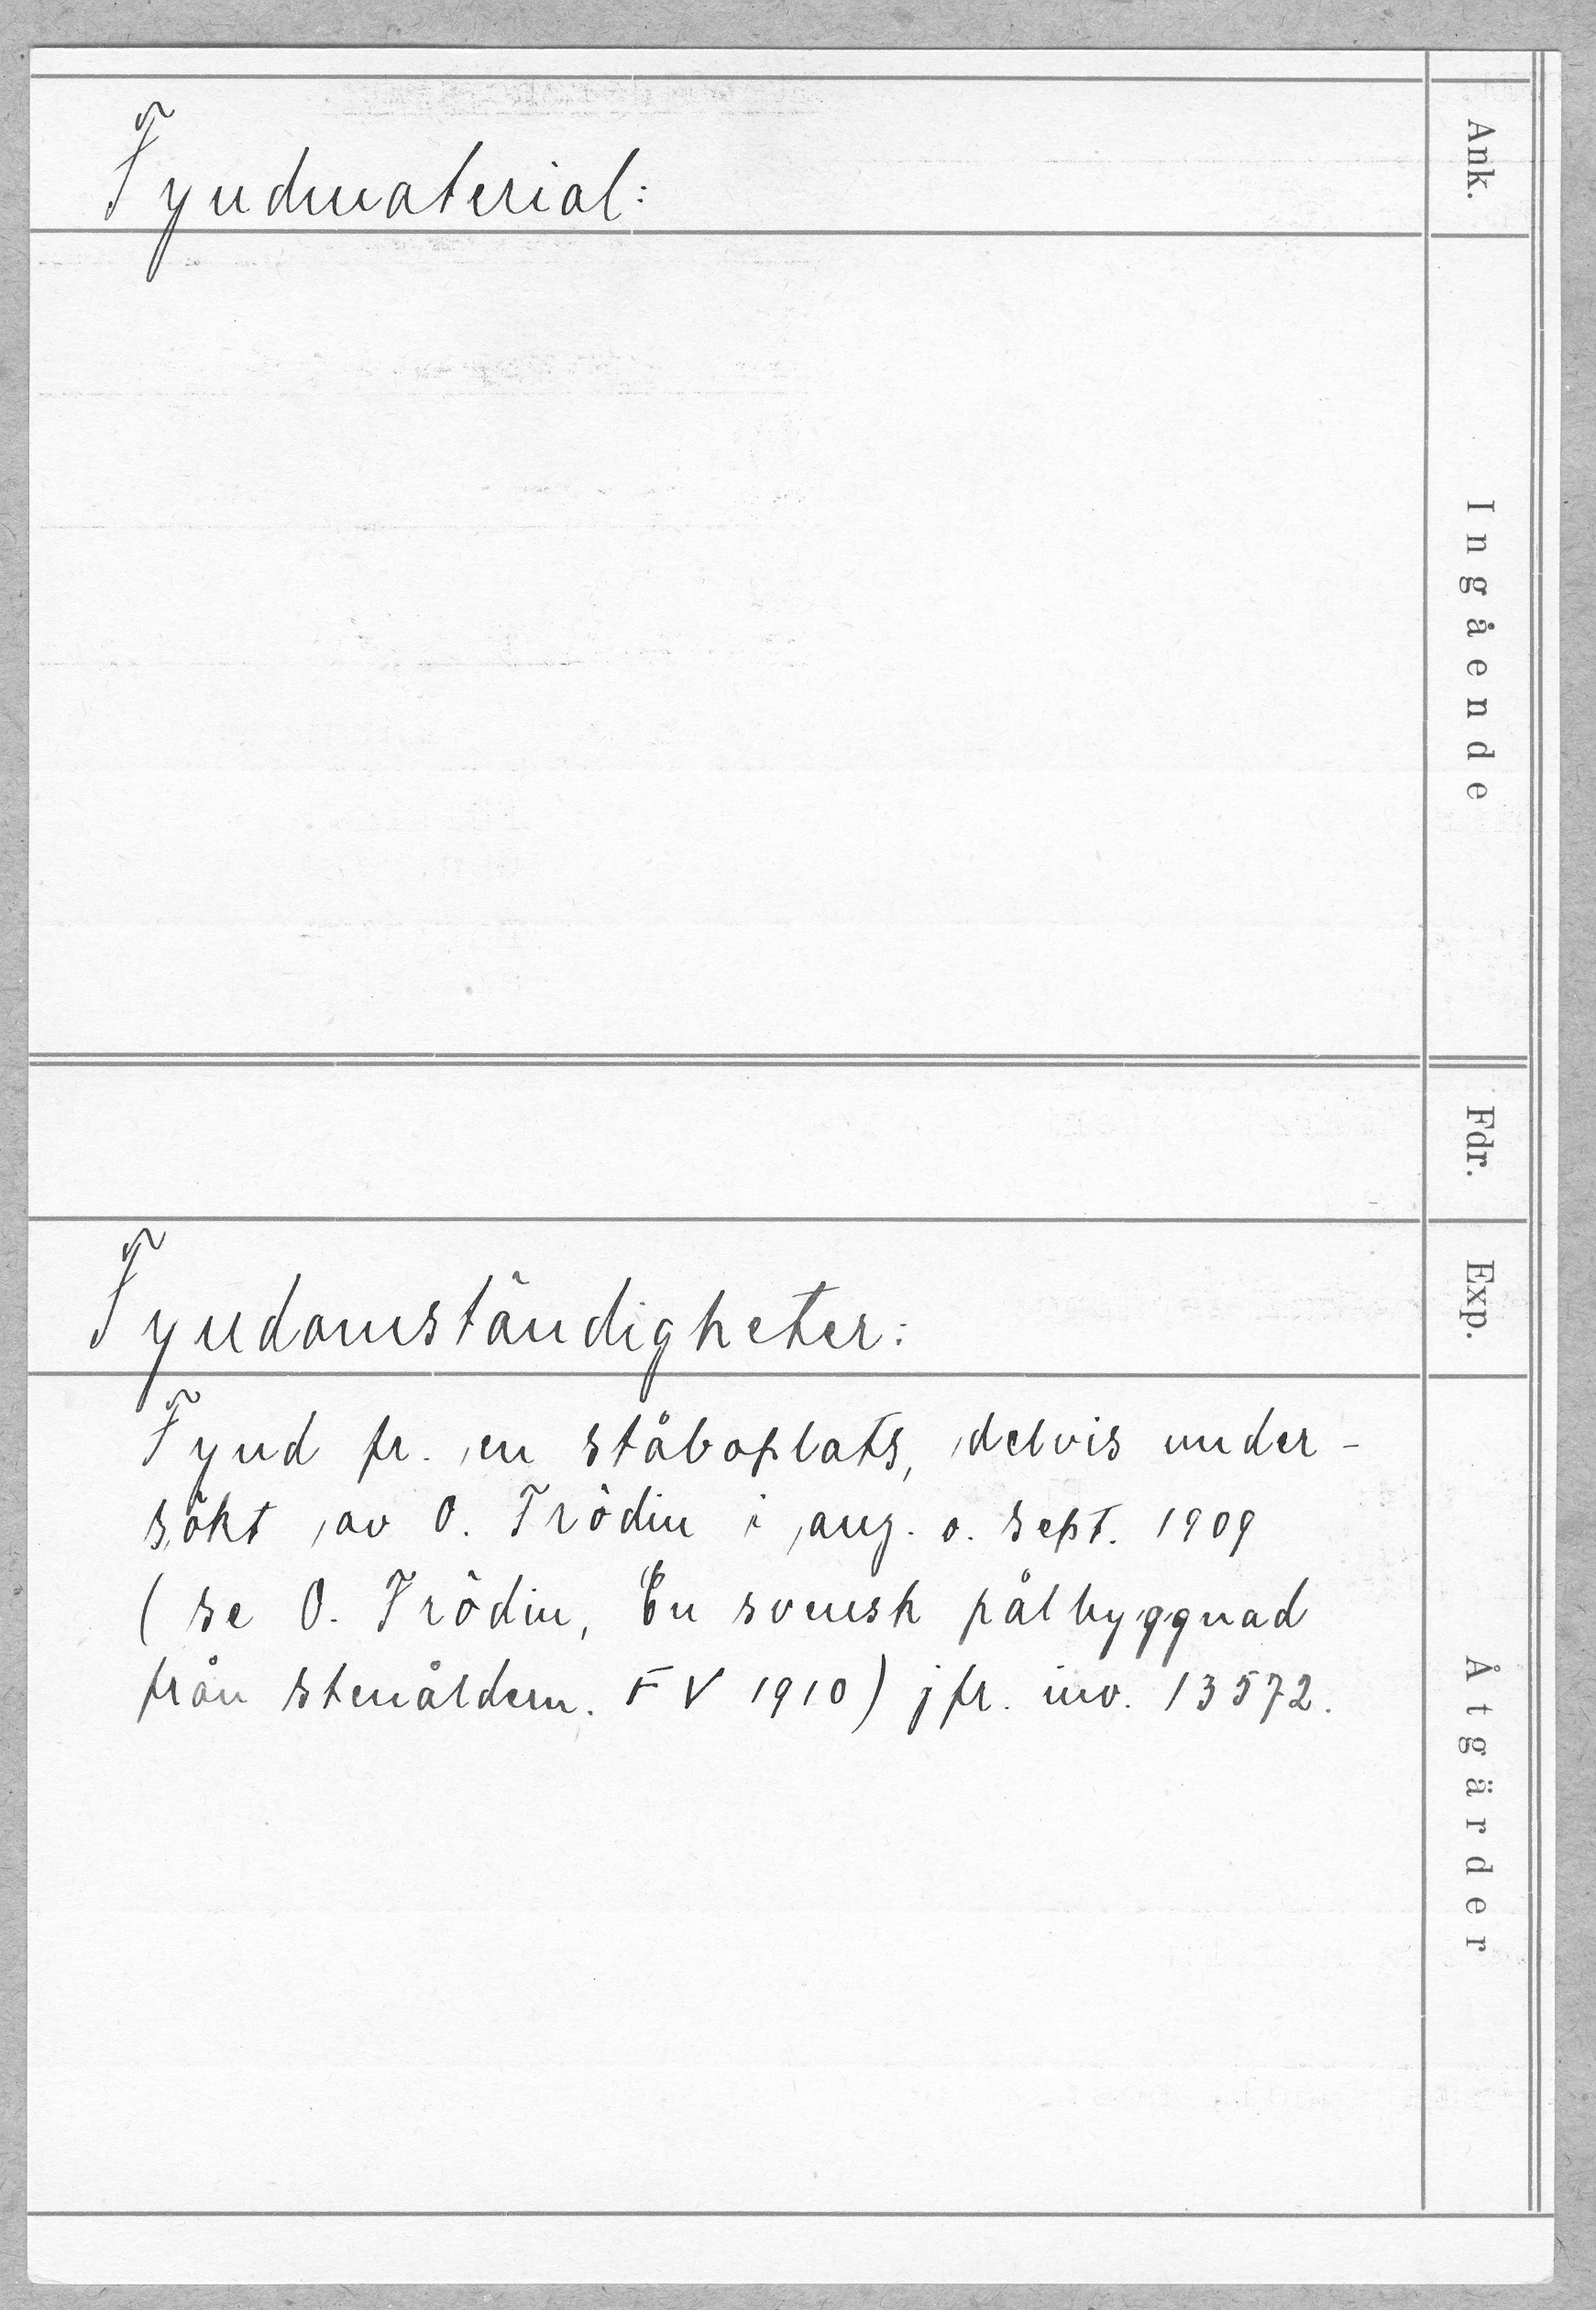 Fyndmaterial:
Fyndomständigheter:
Fynd fr. en ståboplats, delvis under-
sökt av O. Frödin i aug. o. sept. 1909
(se O. Frödin, En svensk pålbyggnad
från stenåldern. FV 1910) jfr. inv. 13572.
Ank.
Ingående
Fdr.
Exp.
Åtgärder